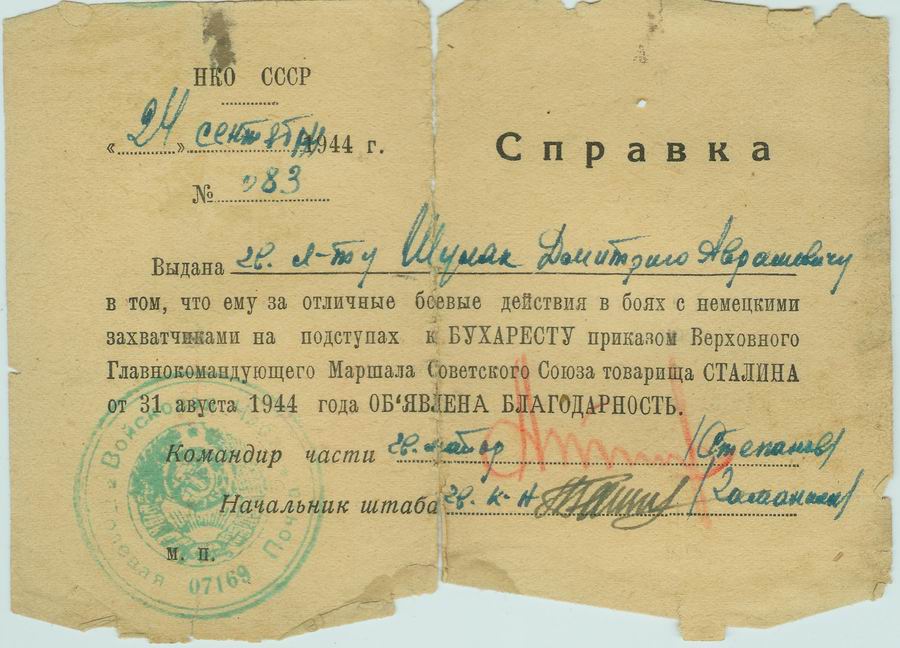 НКО СССР
« 24 » сентября 1944 г.
№ 083
Справка
Выдана гв. л-ту Шуляк Дмитрию Аврамовичу
в том, что ему за отличные боевые действия в боях с немецкими
захватчиками на подступах к БУХАРЕСТУ приказом Верховного
Главнокомандующего Маршала Советского Союза товарища СТАЛИНА
от 31 авуста 1944 года ОБ‘ЯВЛЕНА БЛАГОДАРНОСТЬ.
Командир части гв. майор /Степанов/
Начальник штаба гв. к-н
м. п.
Войсковая
Полевая Почта
07169